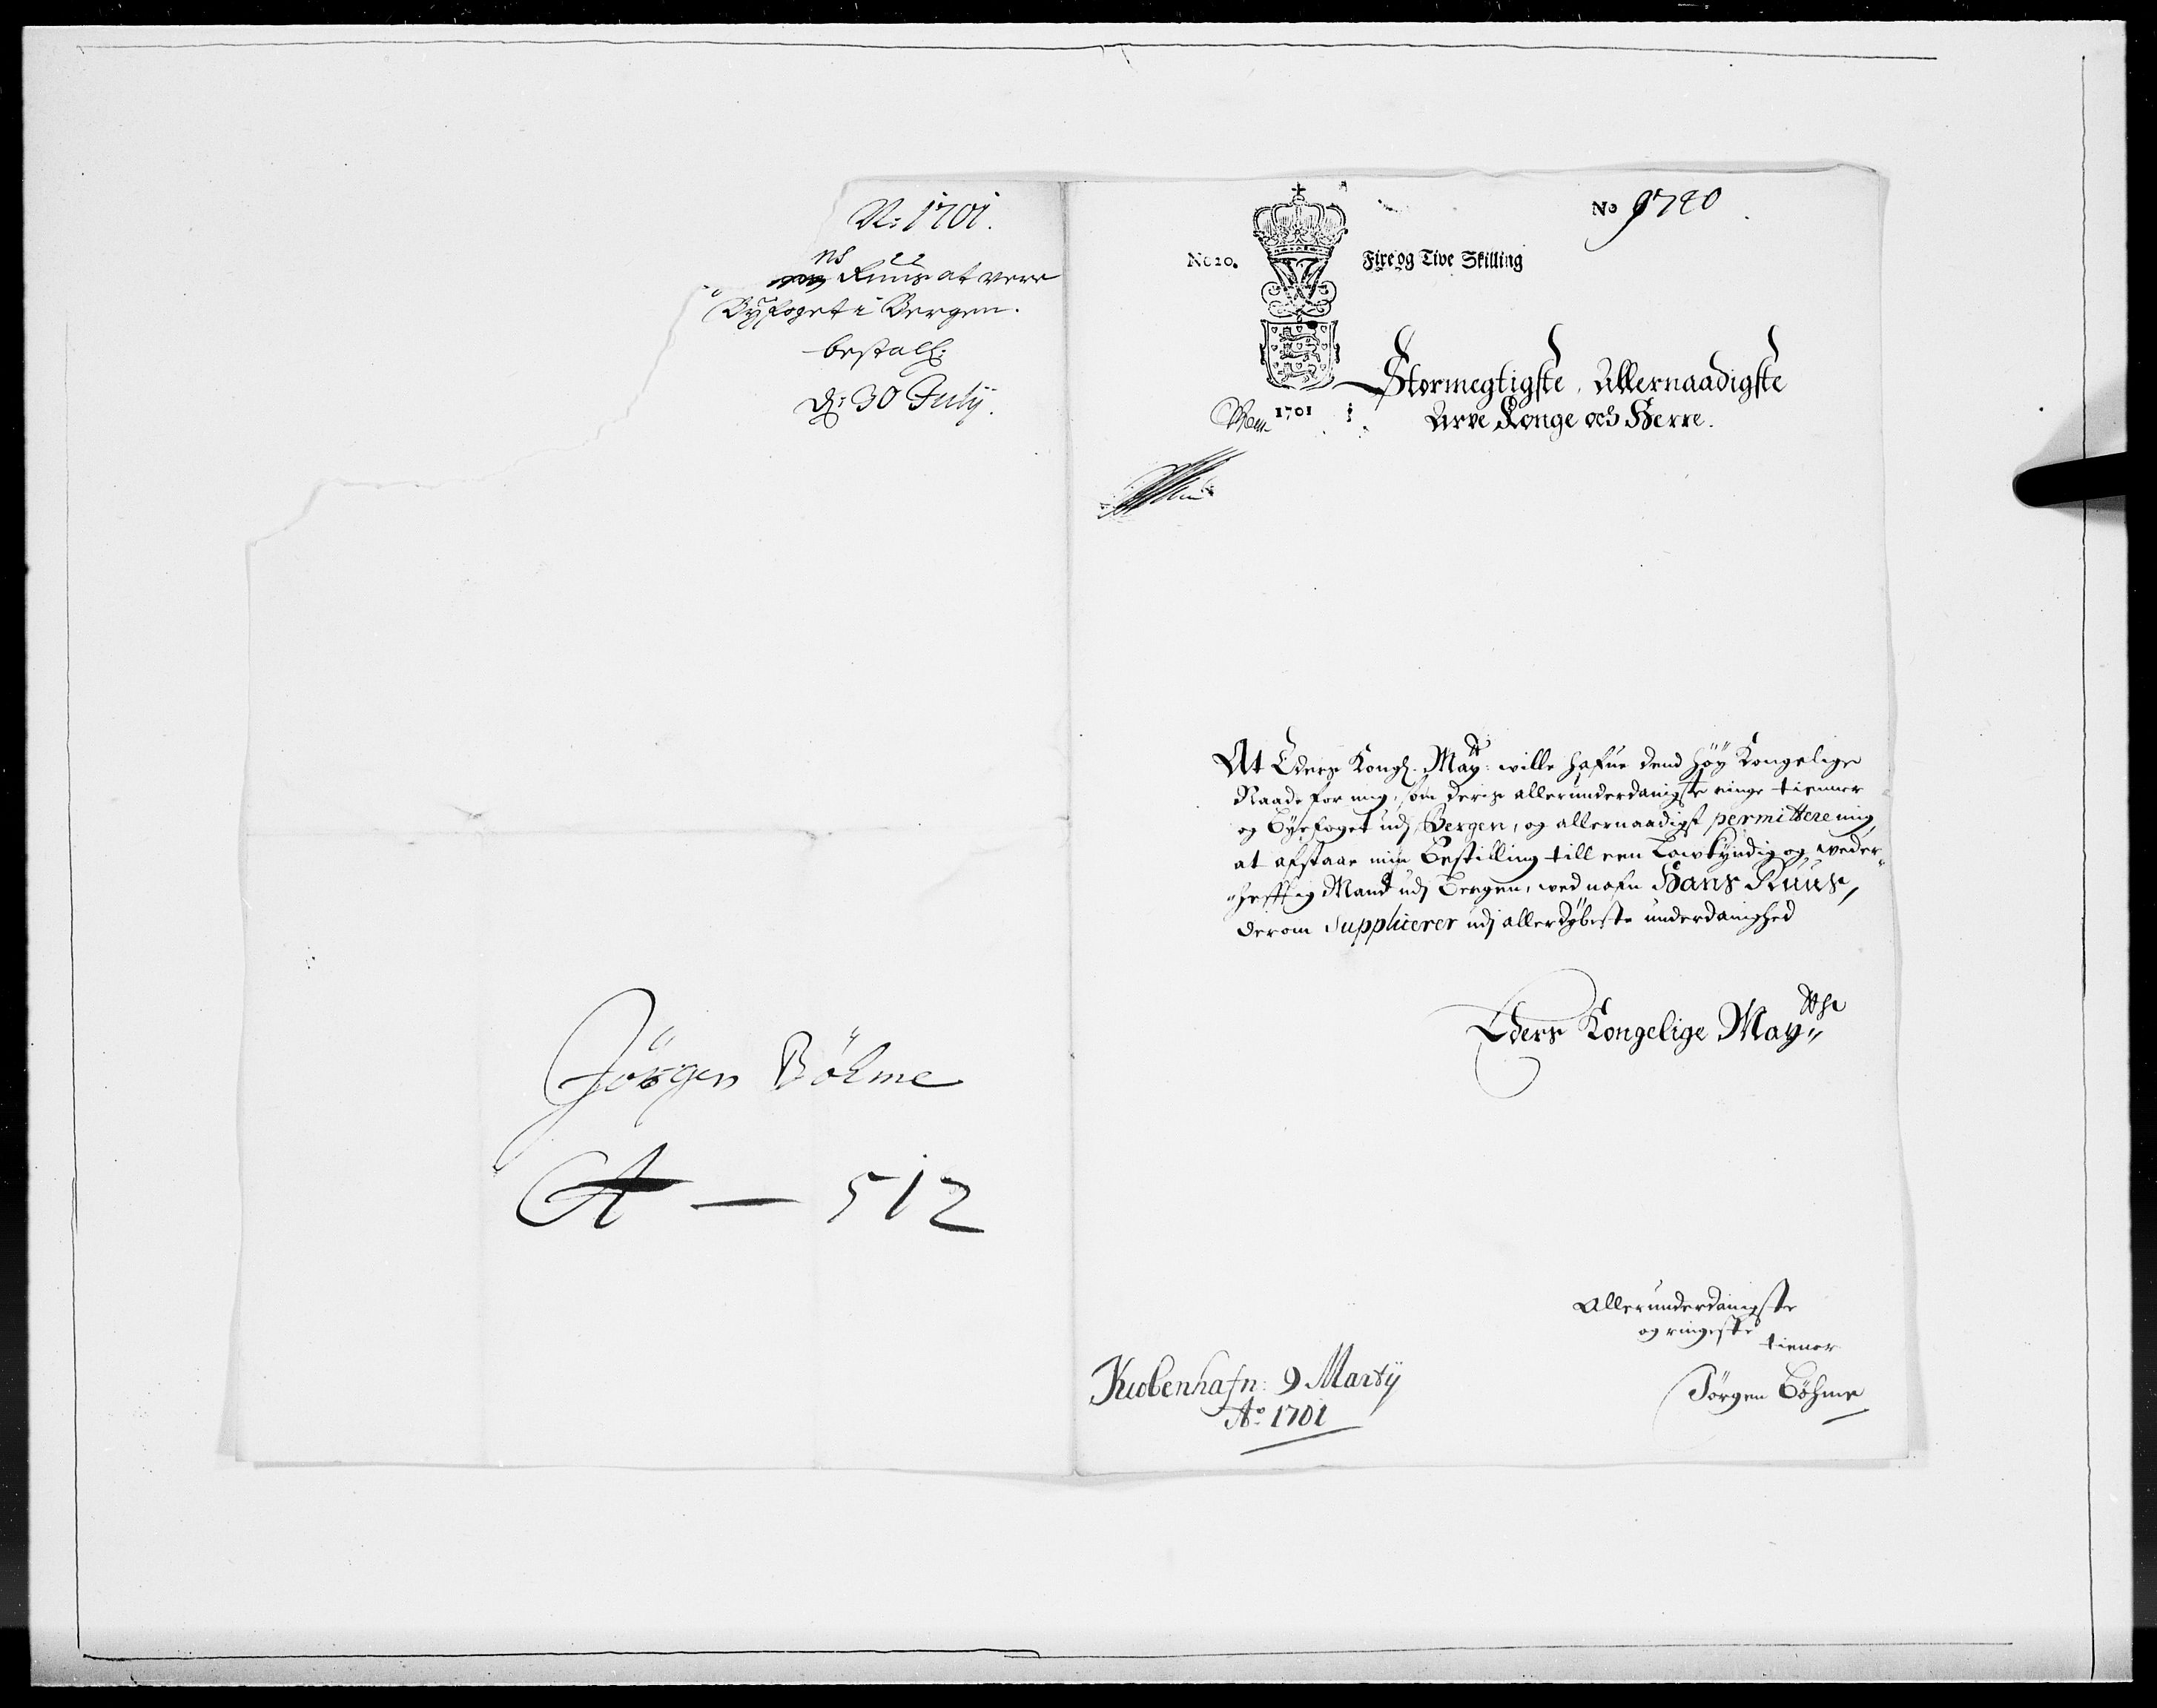 N: 1701.
ns
Ruus at vere
Byfoget i Bergen.
bestall:
d: 30 July.
Jörgen Böhme
A — 512
No 9740
No 20. Fire og Tive Skilling
1701
Stormegtigste, Allernaadigste
Arve Konge och Herre.
At Eders Kongl. May:tt wille hafue dend höy Kongelige
Naade for mig, som deris allerunderdanigste ringe tienner
og Byefoget udj Bergen, og allernaadigst permittere mig
at afstaae min Bestilling till een Lowkyndig og weder„
„hefftig Mand udj Bergen, wed nafn Hans Ruus,
derom Supplicerer udj allerdybeste underdanighed
Eders Kongelige May„ttz
Allerunderdanigste
og ringeste
tiener
Jörgen Böhme
Kiøbenhafn: 9 Martij
Ao 1701